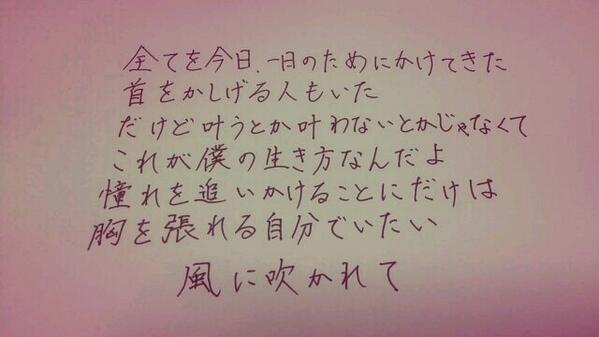 全てを今日、一日のためにかけてきた
首をかしげる人もいた
だけど叶うとか叶わないとかじゃなくて
これが僕の生き方なんだよ
憧れを追いかけることにだけは
胸を張れる自分でいたい
風に吹かれて